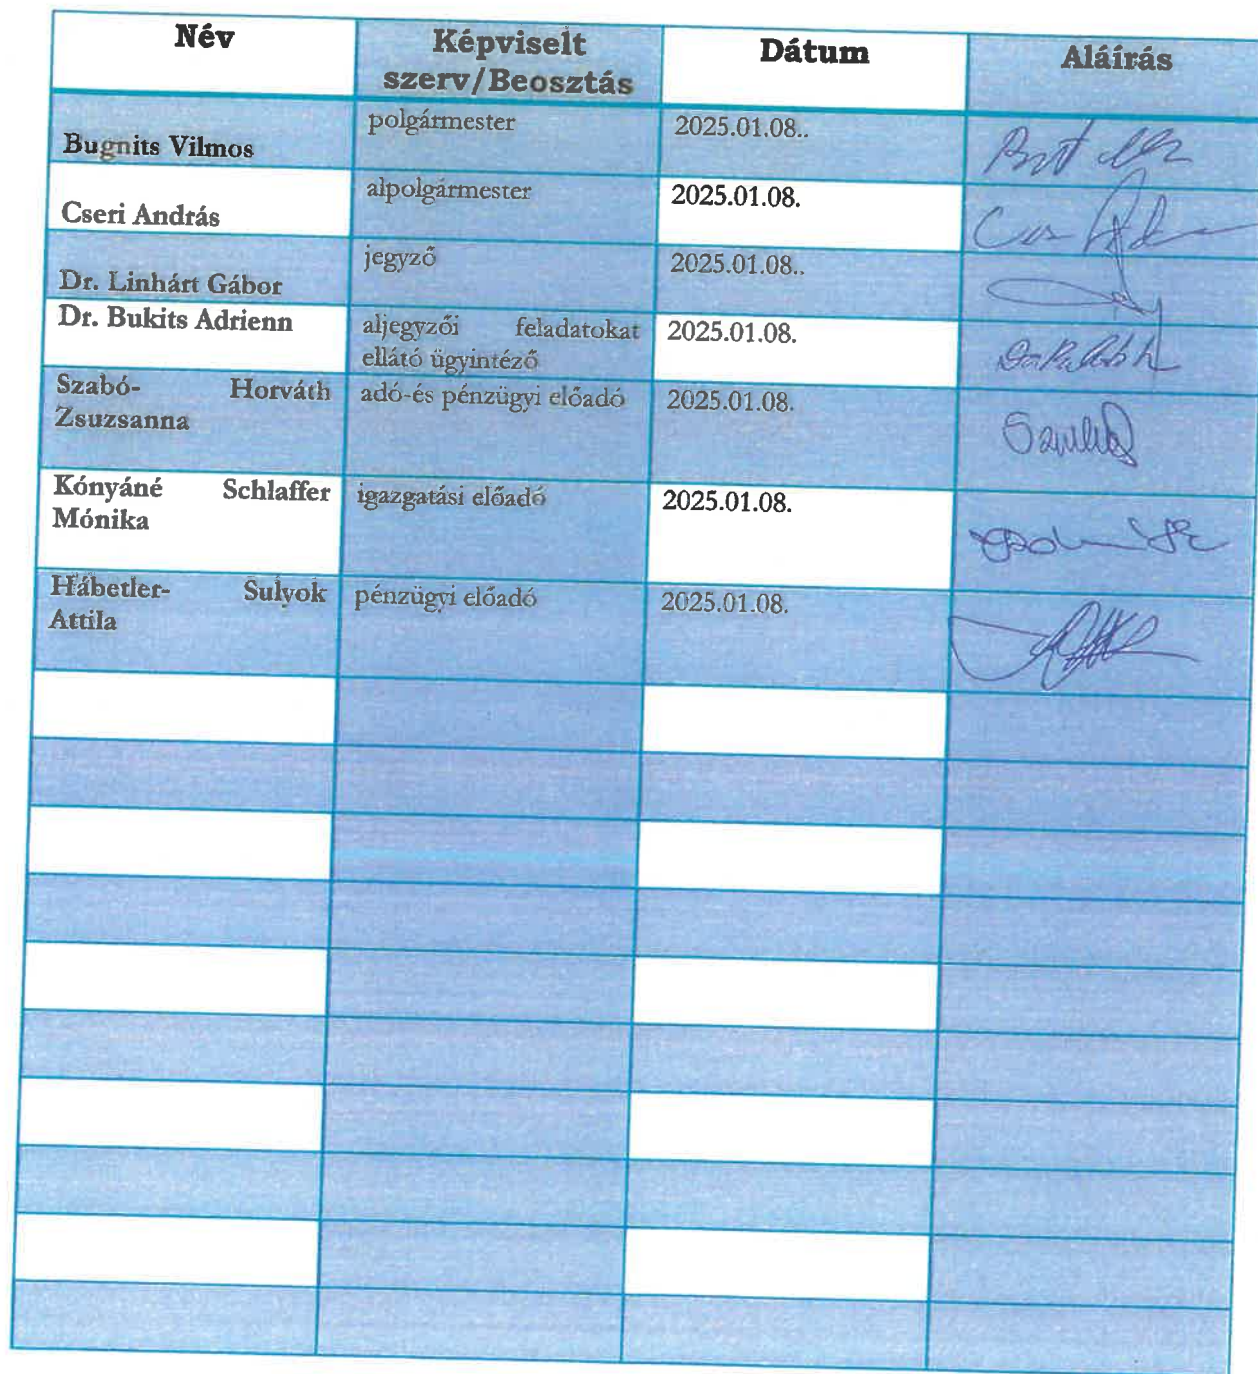 Név
Képviselt
szerv/Beosztás
Dátum
Aláírás
Bugnits Vilmos
polgármester
2025.01.08..
Cseri András
alpolgármester
2025.01.08.
Dr. Linhárt Gábor
jegyző
2025.01.08..
Dr. Bukits Adrienn
aljegyzői feladatokat
ellátó ügyintéző
2025.01.08.
Szabó- Horváth
Zsuzsanna
adó-és pénzügyi előadó
2025.01.08.
Kónyáné Schlaffer
Mónika
igazgatási előadó
2025.01.08.
Hábetler- Sulyok
Attila
pénzügyi előadó
2025.01.08.